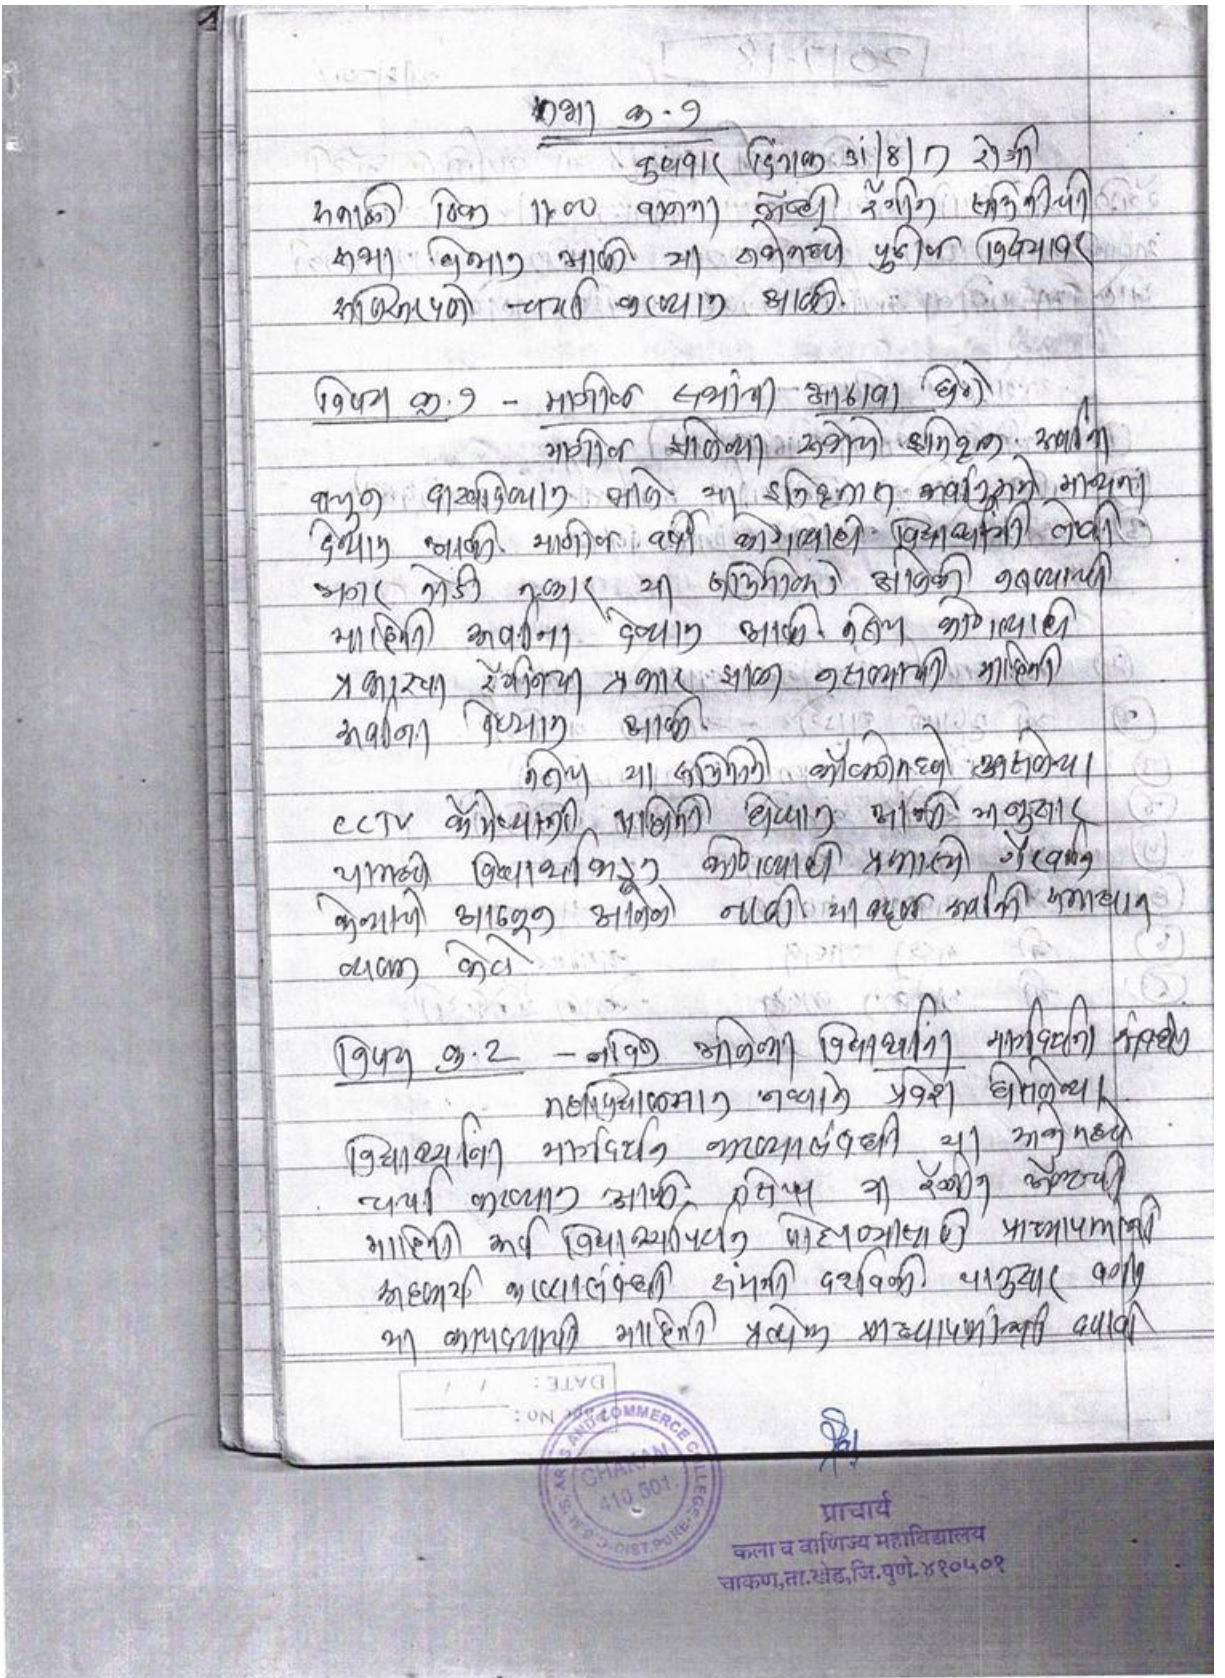 सभा क्र. १
बुधवार दिनांक 31/8/17 रोजी
सकाळी ठिक 11.00 वाजता अँन्टी रॅगींग समितीची
सभा घेण्यात आली या सभेमध्ये पुढील विषयावर
सविस्तरपणे चर्चा करण्यात आली.
विषय क्र. १ - मागील सभांचा आढावा घेणे
मागील झालेल्या सभेचे इतिवृत्त सर्वांना
वाचून दाखविण्यात आले या इतिवृत्तास सर्वानुमते मान्यता
देण्यात आली. मागील वर्षी कोणत्याही विद्यार्थ्यांची लेखी
अगर तोंडी तक्रार या समितीकडे आलेली नसल्याची
माहिती सर्वांना देण्यात आली. तसेच कोणत्याही
प्रकारचा रॅगिंगचा प्रकार झाला नसल्याची माहिती
सर्वांना देण्यात आली.
तसेच या समितीने कॉलेजमध्ये असलेल्या
CCTV कॅमेऱ्याची माहिती घेण्यात आली त्यानुसार
यामध्ये विद्यार्थ्यांकडून कोणत्याही प्रकारची गैरवर्तन
केल्याचे आढळून आलेले नाही याबद्दल सर्वांनी समाधान
व्यक्त केले.
विषय क्र. 2 - नविन आलेल्या विद्यार्थ्यांना मार्गदर्शन संबंधी
महाविद्यालयात नव्याने प्रवेश घेतलेल्या
विद्यार्थ्यांना मार्गदर्शन करण्यासंबंधी या सभेमध्ये
चर्चा करण्यात आली. तसेच या रॅगींग अॅक्टची
माहिती सर्व विद्यार्थ्यांपर्यंत पोहचण्यासाठी प्राध्यापकांनी
सहकार्य करण्यासंबंधी संमती दर्शविली यानुसार वर्गात
या कायद्याची माहिती प्रत्येक प्राध्यापकांनी द्यावी
DATE: / /
ARTS AND COMMERCE COLLEGE
CHAKAN
410 501.
DIST.PUNE
प्राचार्य
कला व वाणिज्य महाविद्यालय
चाकण,ता.खेड,जि.पुणे.४१०५०१